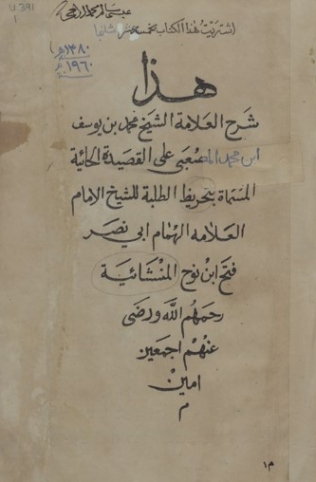 U 391
1
اشتريت هذا الكتاب بخمسة عشر شلنا
١٣٨٠ هـ
١٩٦٠ م
هذا
شرح العلامة الشيخ محمد بن يوسف
ابن محمد المصعبي على القصيدة الحائية
المسماة بتحريظ الطلبة للشيخ الامام
العلامه الهمام ابي نصر
فتح ابن نوح المنشائية
رحمهم الله ورضى
عنهم اجمعين
امين
م
م١